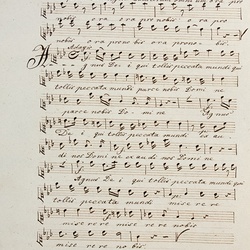 nobis o ra pro nobis o ra pro
nobis o ra pro bis o ra pro no bis.
Adagio
Agnus De i qui tollis peccata mundi qui
tollis peccata mundi parce nobis Do mi ne
parce nobis Do mi ne Agnus
De i qui tollis peccata mundi ex au
di nos Domi ne ex au di nos Domi ne
Agnus De i qui tollis peccata mundi
tollis peccata mundi mise re re
mise re re mise re re nobis
mise re re no bis.